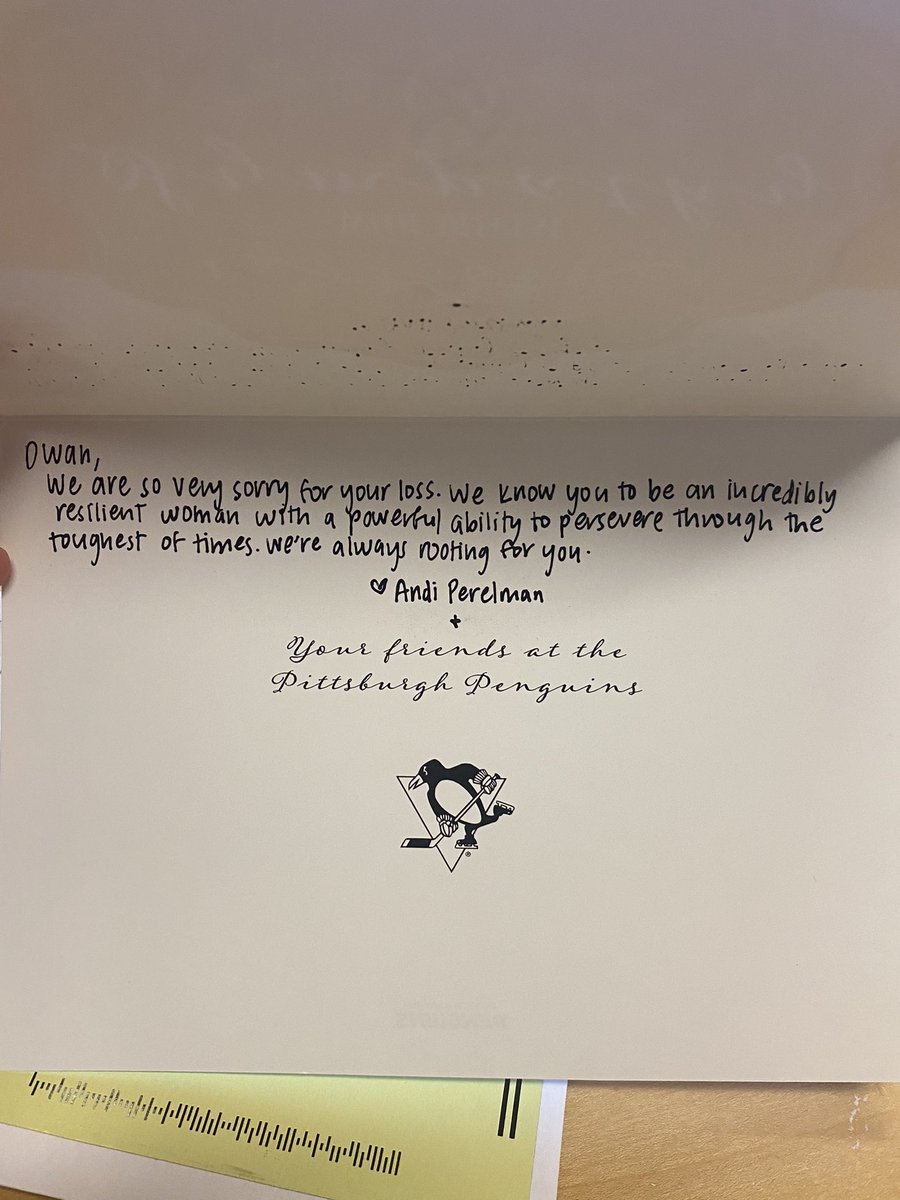 Dwan,
We are so very sorry for your loss. We know you to be an incredibly
resilient woman with a powerful ability to persevere through the
toughest of times. We're always rooting for you.
♡ Andi Perelman
+
Your friends at the
Pittsburgh Penguins
®